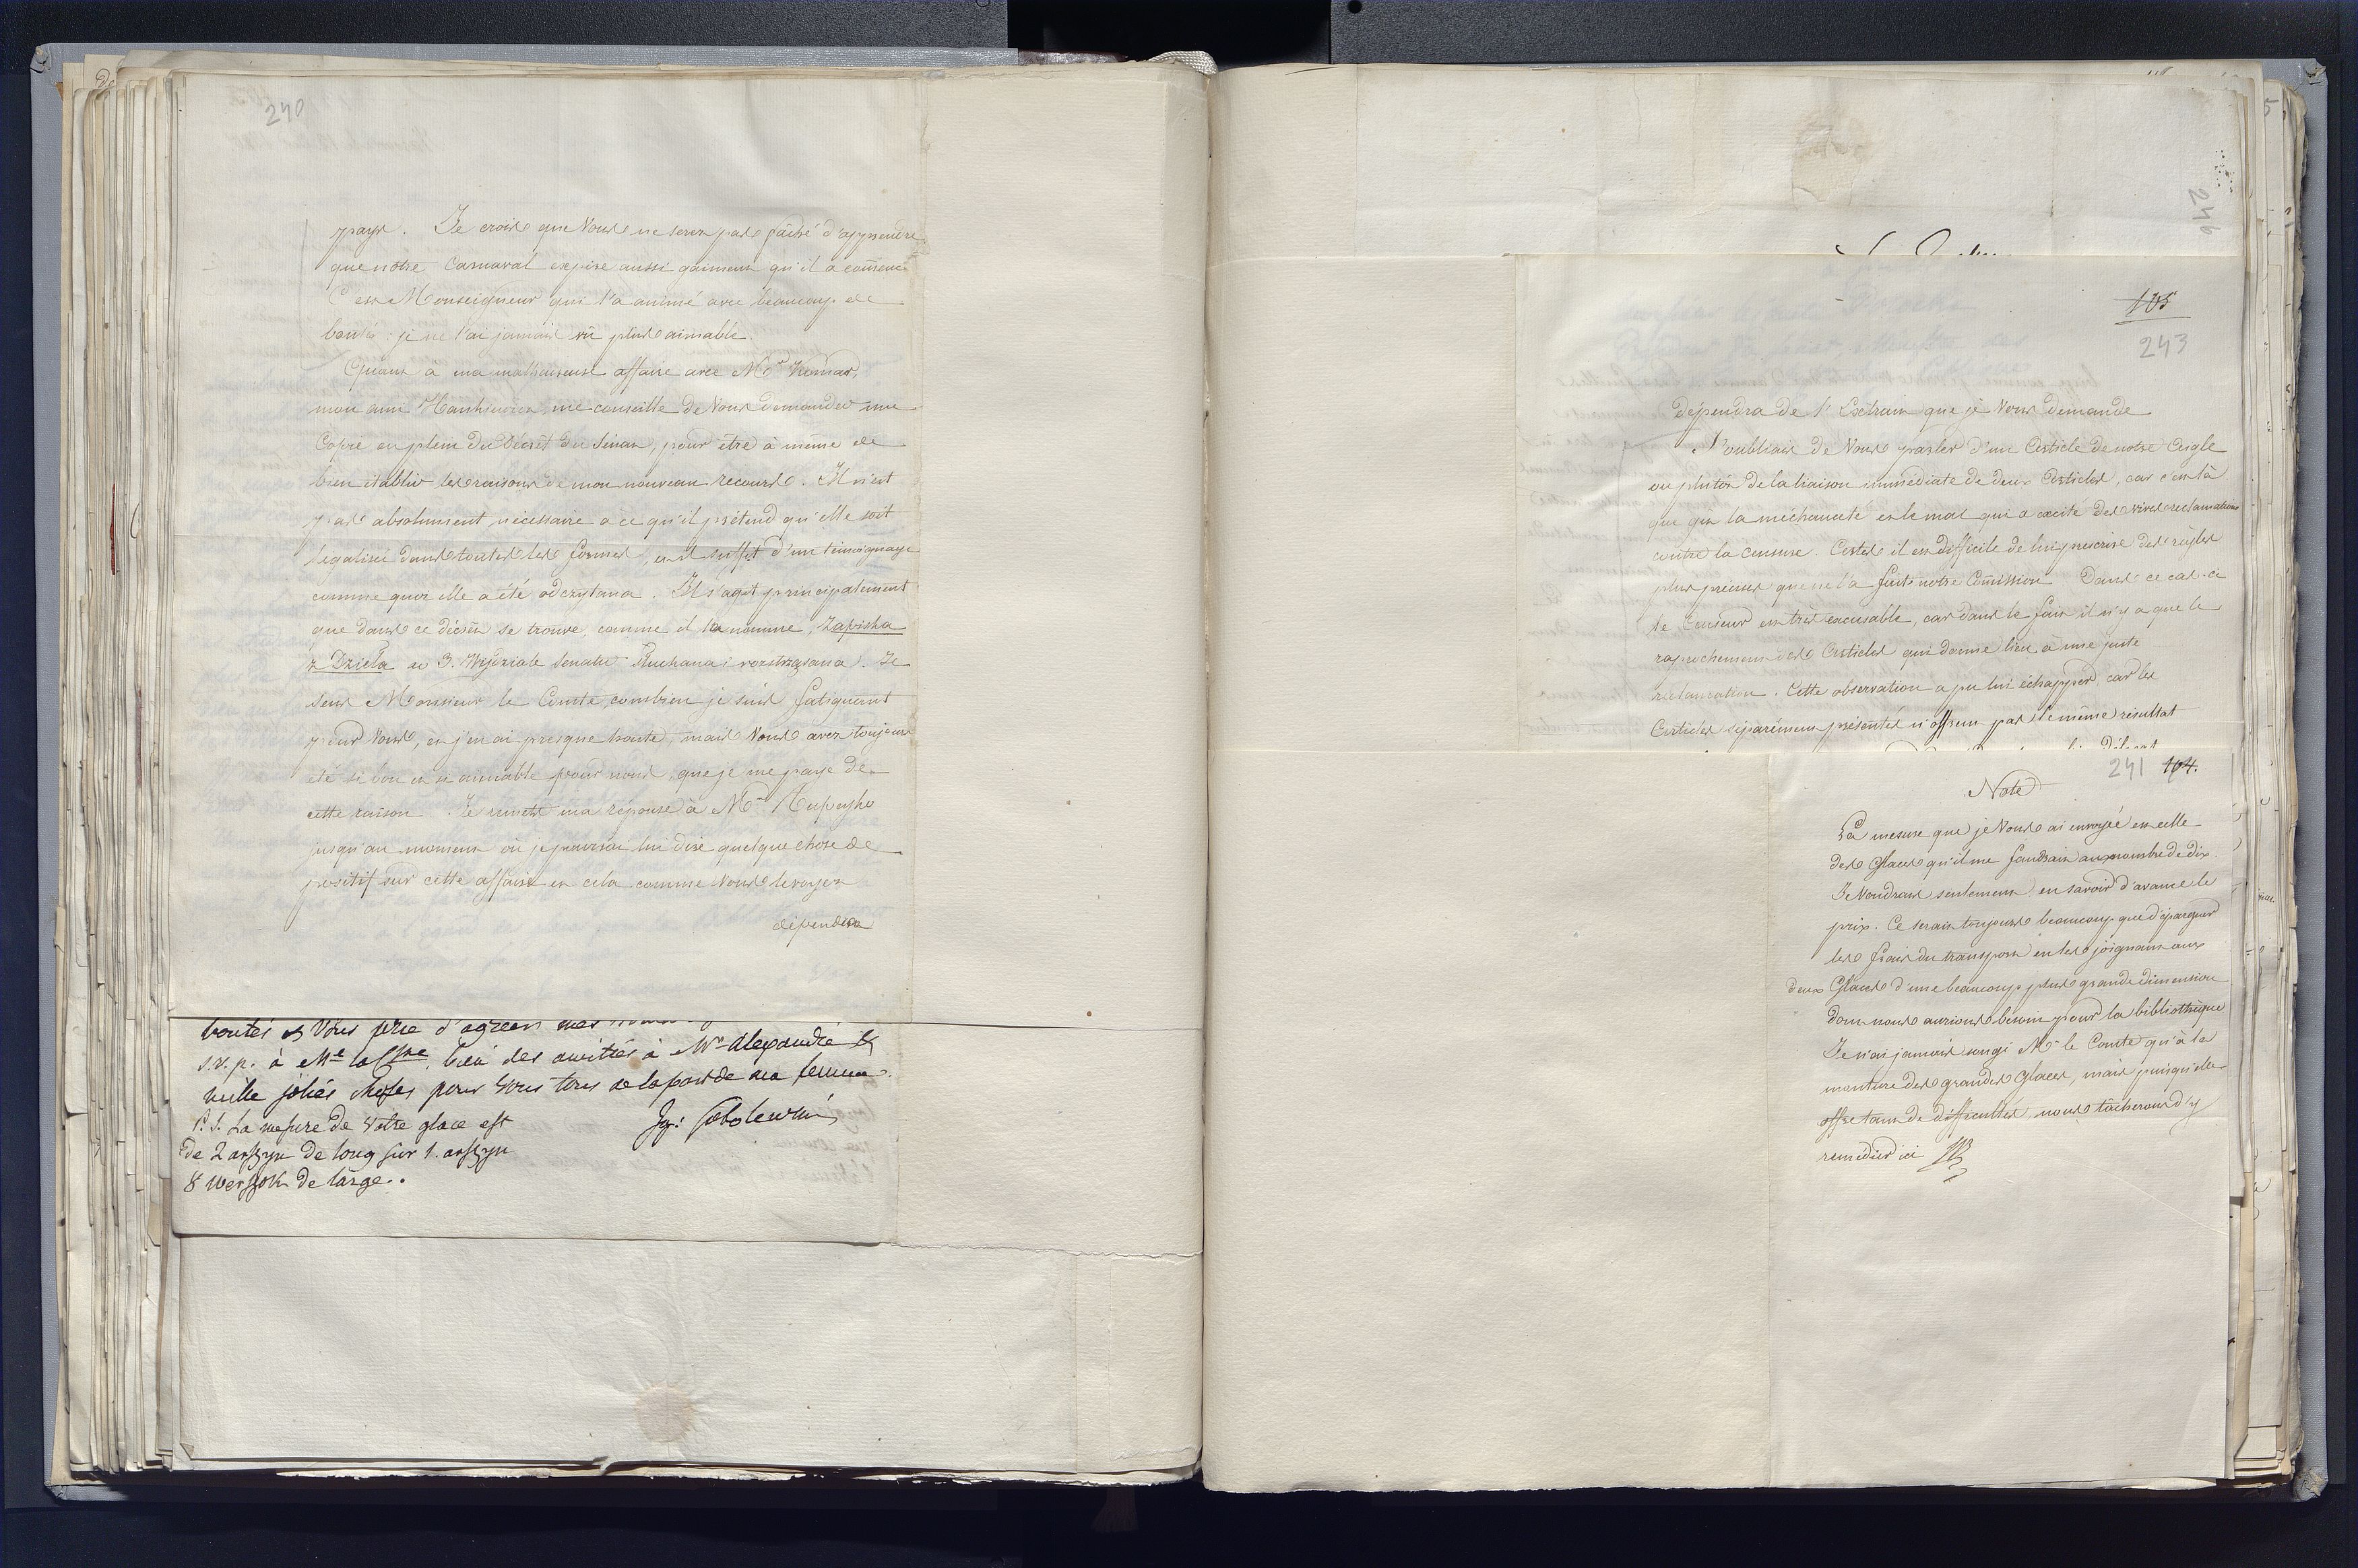 240
pays. Je crois que Vous ne serez pas fâché d'apprendre
que notre Carnaval expire aussi gaiment qu'il a comencé
C'est Monseigneur qui l'a animé avec beaucoup de
bonté: je ne l'ai jamais vû plus aimable.
Quant à ma malheureuse affaire avec Mr
mon ami me conseille de Vous demander une
Copie en plein du Décret du Sénat, pour être à même de
bien établir les raisons de mon nouveau recours. Il n'est
pas absolument nécessaire a ce qu'il prétend qu'elle soit
legalisée dans toutes les formes, et il suffit d'un témoignage
comme quoi elle a été odczytana. Il s'agit principalement
que dans ce décret se trouve, comme il la nomme, Zapiska
z Dzieła w 3. Wydziale Senatu Słuchana i roztrząsana. Je
sens Monsieur le Comte, combien je suis fatiguant
pour Vous, et j'en ai presque honte, mais Vous avez toujours
été si bon et si aimable pour nous, que je me paye de
cette raison. Je remets ma réponse à Mr
jusqu'au moment où je pourrai lui dire quelque chose de
positif sur cette affaire et cela comme Vous le voyez
dépendra
bontés et Vous prie d'agréer mes
s.v.p. à Me la Csse, bien des amitiés à Mr Alexandre &
mille jolies choses pour Vous tous de la part de ma femme.
Ig: Sobolewski
P.S. La mesure de Votre glace est
de 2 arszyn de long sur 1. arszyn
8 werszok de large.
246
105
243
dépendra de l'Extrait que je Vous demande
J'oubliais de Vous parler d'un Article de notre Aigle
ou plutôt de la liaison immédiate de deux Articles, car c'est là
que gît la méchanceté et le mal qui a excité des vives reclamations
contre la censure. Certes il est difficile de lui prescrire des règles
plus précises que ne l'a fait notre Comission. Dans ce cas-ci
le Censeur est très excusable, car dans le fait il n'y a que le
raprochement des Articles qui donne lieu à une juste
réclamation. Cette observation a pu lui échapper, car les
Articles séparément présentés n'offrent pas le même résultat
241 104.
Note
La mesure que je Vous ai envoyée est celle
des Glaces qu'il me faudrait au nombre de dix
Je Voudrais seulement en savoir d'avance le
prix. Ce serait toujours beaucoup que d'épargner
les frais du transport en les joignant aux
deux Glaces d'une beaucoup plus grande dimension
dont nous aurions besoin pour la bibliothèque
Je n'ai jamais songé Mr le Comte qu'à la
monture des grandes Glaces, mais puisqu'elle
offre tant de difficultés nous tâcherons d'y
remédier ici